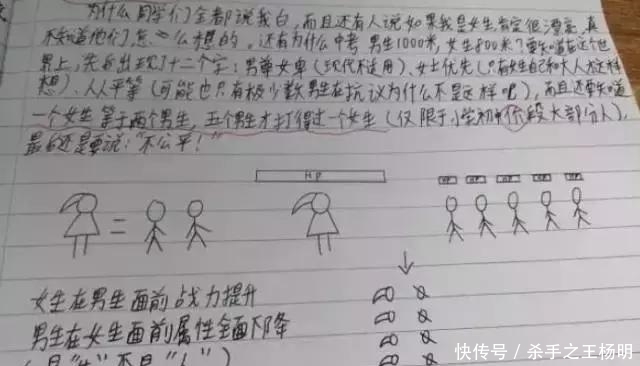 为什么同学们全都说我白，而且还有人说如果我是女生肯定很漂亮，真
不知道他们怎么想的，还有为什么中考男生1000米，女生800米？要知道在这个世
界上，先后出现了十二个字：男尊女卑（现代不适用）、女士优先（只有女生自己和大人才这样
想）、人人平等（可能也只有极少数男生在抗议为什么不是这样吧），而且还要知道
一个女生等于两个男生，五个男生才打得过一个女生（仅限于小学初中阶段大部分人），
最后还是要说："不公平！"
HP
HP HP HP HP HP
=
女生在男生面前战力提升
男生在女生面前属性全面下降
快传号／杀手之王杨明